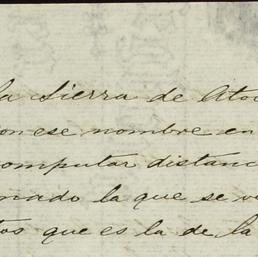 la Sierra de Ato
ese nombre en
computar distanc
nado la que se v
tos que es la de la